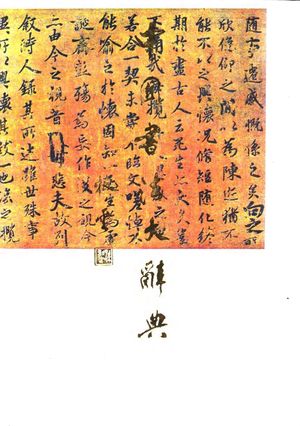 隨事遷感慨係之矣向之所
欣俛仰之閒以為陳迹猶不
能不以之興懷況脩短隨化終
期於盡古人云死生亦大矣豈
國書大
若合一契未嘗不臨文嗟悼不
能喻之於懷固知一死生為虛
誕齊彭殤為妄作後之視今
亦由今之視昔悲夫故列
敘時人錄其所述雖世殊事
異所以興懷其致一也後之攬
辭典